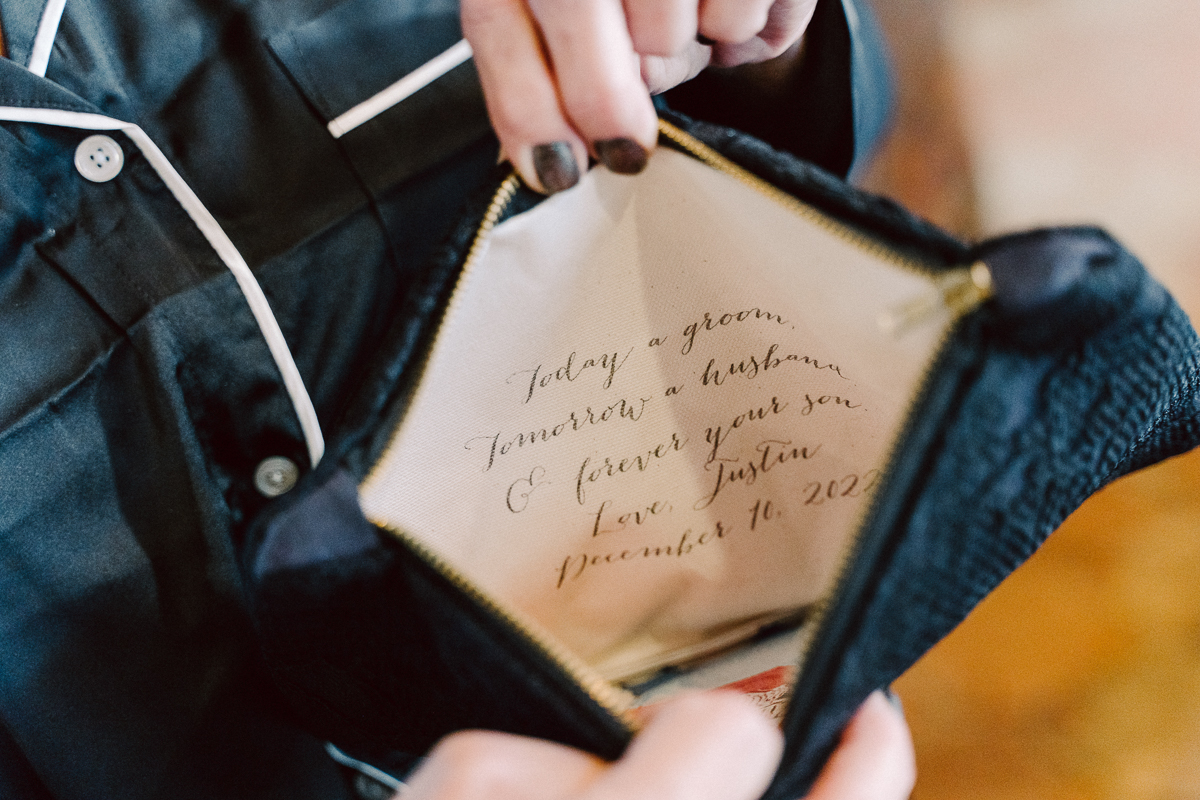 Today a groom,
Tomorrow a husband
& forever your son.
Love, Justin
December 10, 2022